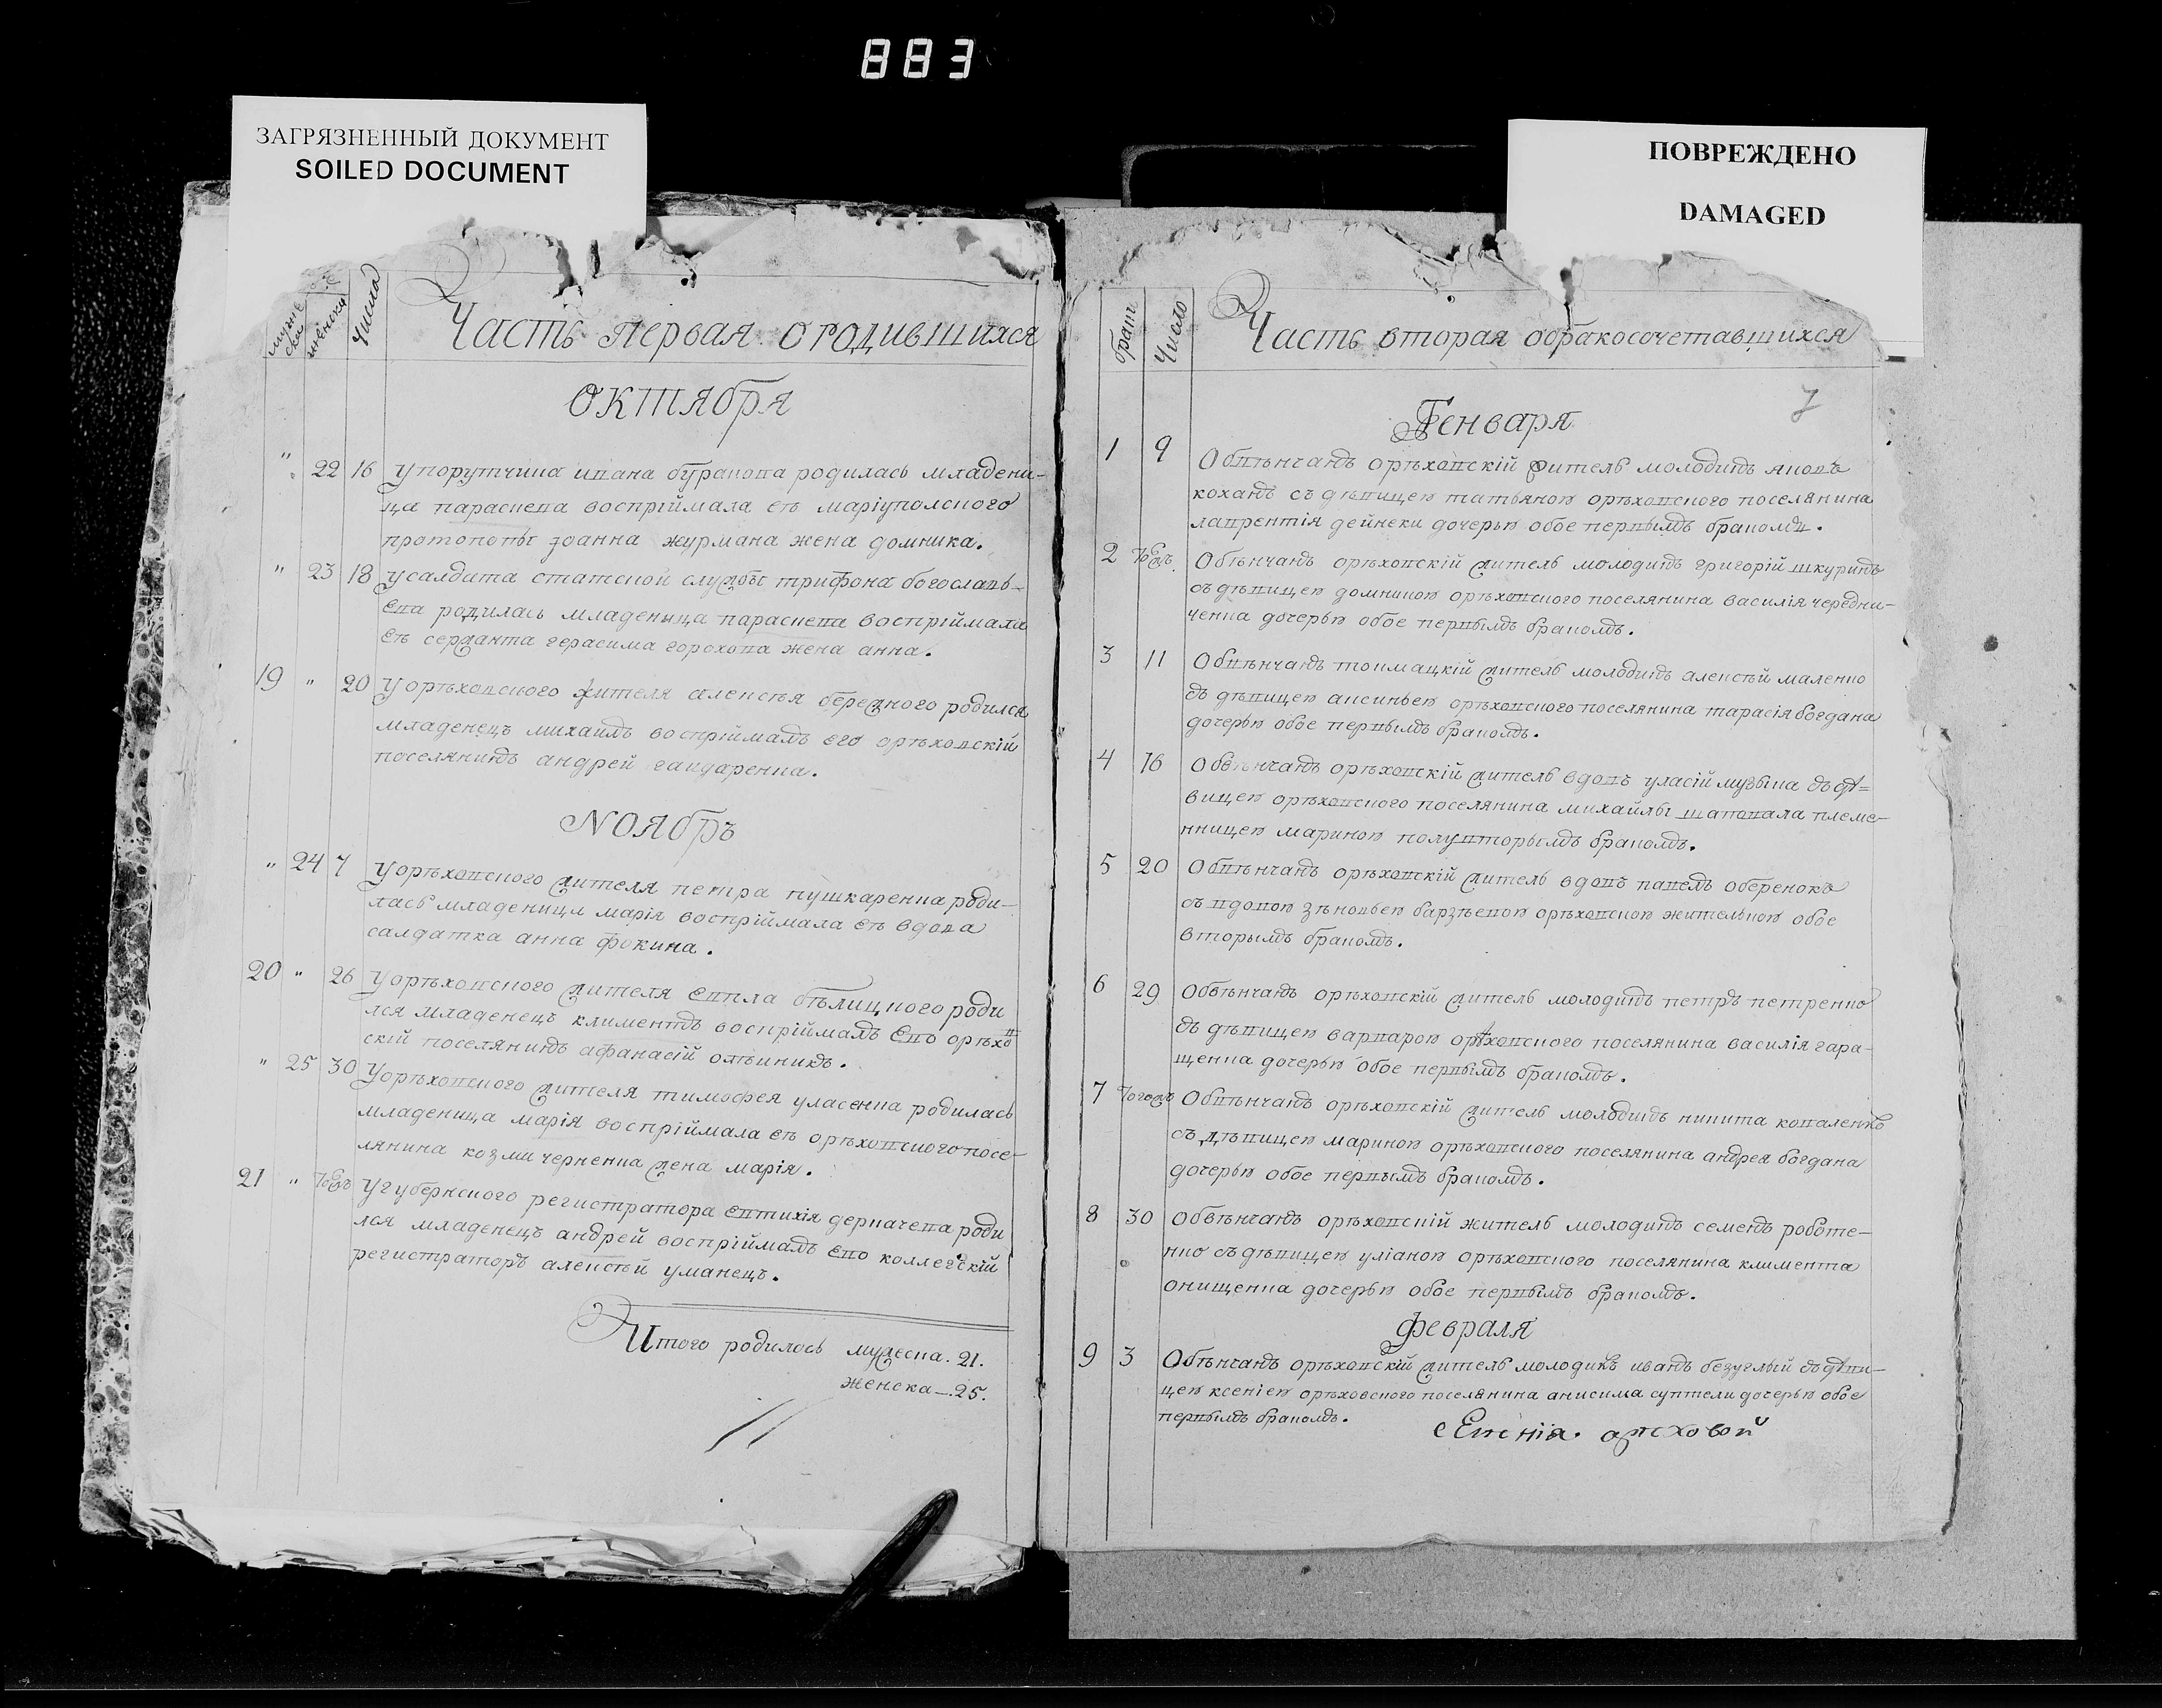 883
ЗАГРЯЗНЕННЫЙ ДОКУМЕНТ
SOILED DOCUMENT
ПОВРЕЖДЕНО
DAMAGED
муже ска женска числа
Часть первая о родившихся
октября
" 22 16 У порутчика ивана буракова родилась младени-
ца параскева воспріймала еѣ маріуполского
протопопы іоанна журмана жена домника.
" 23 18 у салдата статской службы трифона богославъ-
ева родилась младеница параскева воспріймала
еѣ сержанта герасима горохова жена анна.
19 " 20 У орѣховского жителя алексѣя бережного родился
младенецъ михаилъ воспріймалъ его орѣховскій
поселянинъ андрей гандаренка.
Ноябръ
" 24 7 У орѣховского жителя петра пушкаренка роди-
лась младеница марія воспріймала еѣ вдова
салдатка анна фокина.
20 " 26 У орѣховского жителя евпла бѣлицкого роди
лся младенецъ климентъ воспріймалъ ево орѣхов
скій поселянинъ афанасій олѣиникъ.
" 25 30 У орѣховского жителя тимофея уласенка родилась
младеница марія воспріймала еѣ орѣховского посе-
лянина козми черненка жена марія.
21 " У губернского регистратора евтихія деркачева роди
лся младенецъ андрей воспріймалъ ево коллегскій
регистраторъ алексѣй уманецъ.
Итого родилось мужеска. 21.
женска—.25.
бракъ Число
Часть вторая о бракосочетавшихся
7
Генваря
1 9 Обвѣнчанъ орѣховскій житель молодикъ яковъ
коханъ съ дѣвицею татьяною орѣховского поселянина
лаврентія дейнеки дочерью обое первымъ бракомъ.
2 Обвѣнчанъ орѣховскій житель молодикъ григорій шкуринъ
съ дѣвицею домникою орѣховского поселянина василія чередни-
ченка дочерью обое первымъ бракомъ.
3 11 Обвѣнчанъ токмацкій житель молодикъ алексѣй маленко
зъ дѣвицею аксиньею орѣховского поселянина тарасія богдана
дочерью обое первымъ бракомъ.
4 16 Обвѣнчанъ орѣховскій житель вдовъ уласій музыка зъ дѣ=
вицею орѣховского поселянина михайлы шаповала племе-
нницею мариною полувторымъ бракомъ.
5 20 Обвѣнчанъ орѣховскій житель вдовъ павелъ оберенокъ
съ вдовою зѣновьею барзѣевою орѣховскою жителькою обое
вторымъ бракомъ.
6 29 Обвѣнчанъ орѣховскій житель молодикъ петръ петренко
зъ дѣвицею варварою орѣховского поселянина василія гара-
щенка дочерью обое первымъ бракомъ.
7 Обвѣнчанъ орѣховскій житель молодикъ никита коваленко
съ дѣвицею мариною орѣховского поселянина андрея богдана
дочерью обое первымъ бракомъ.
8 30 Обвѣнчанъ орѣховскій житель молодикъ семенъ роботе-
нко съ дѣвицею уліаною орѣховского поселянина климента
онищенка дочерью обое первымъ бракомъ.
Февраля
9 3 Обвѣнчанъ орѣховскій житель молодикъ иванъ безуглый зъ дѣви-
цею ксеніею орѣховского поселянина анисима суптели дочерью обое
первымъ бракомъ.